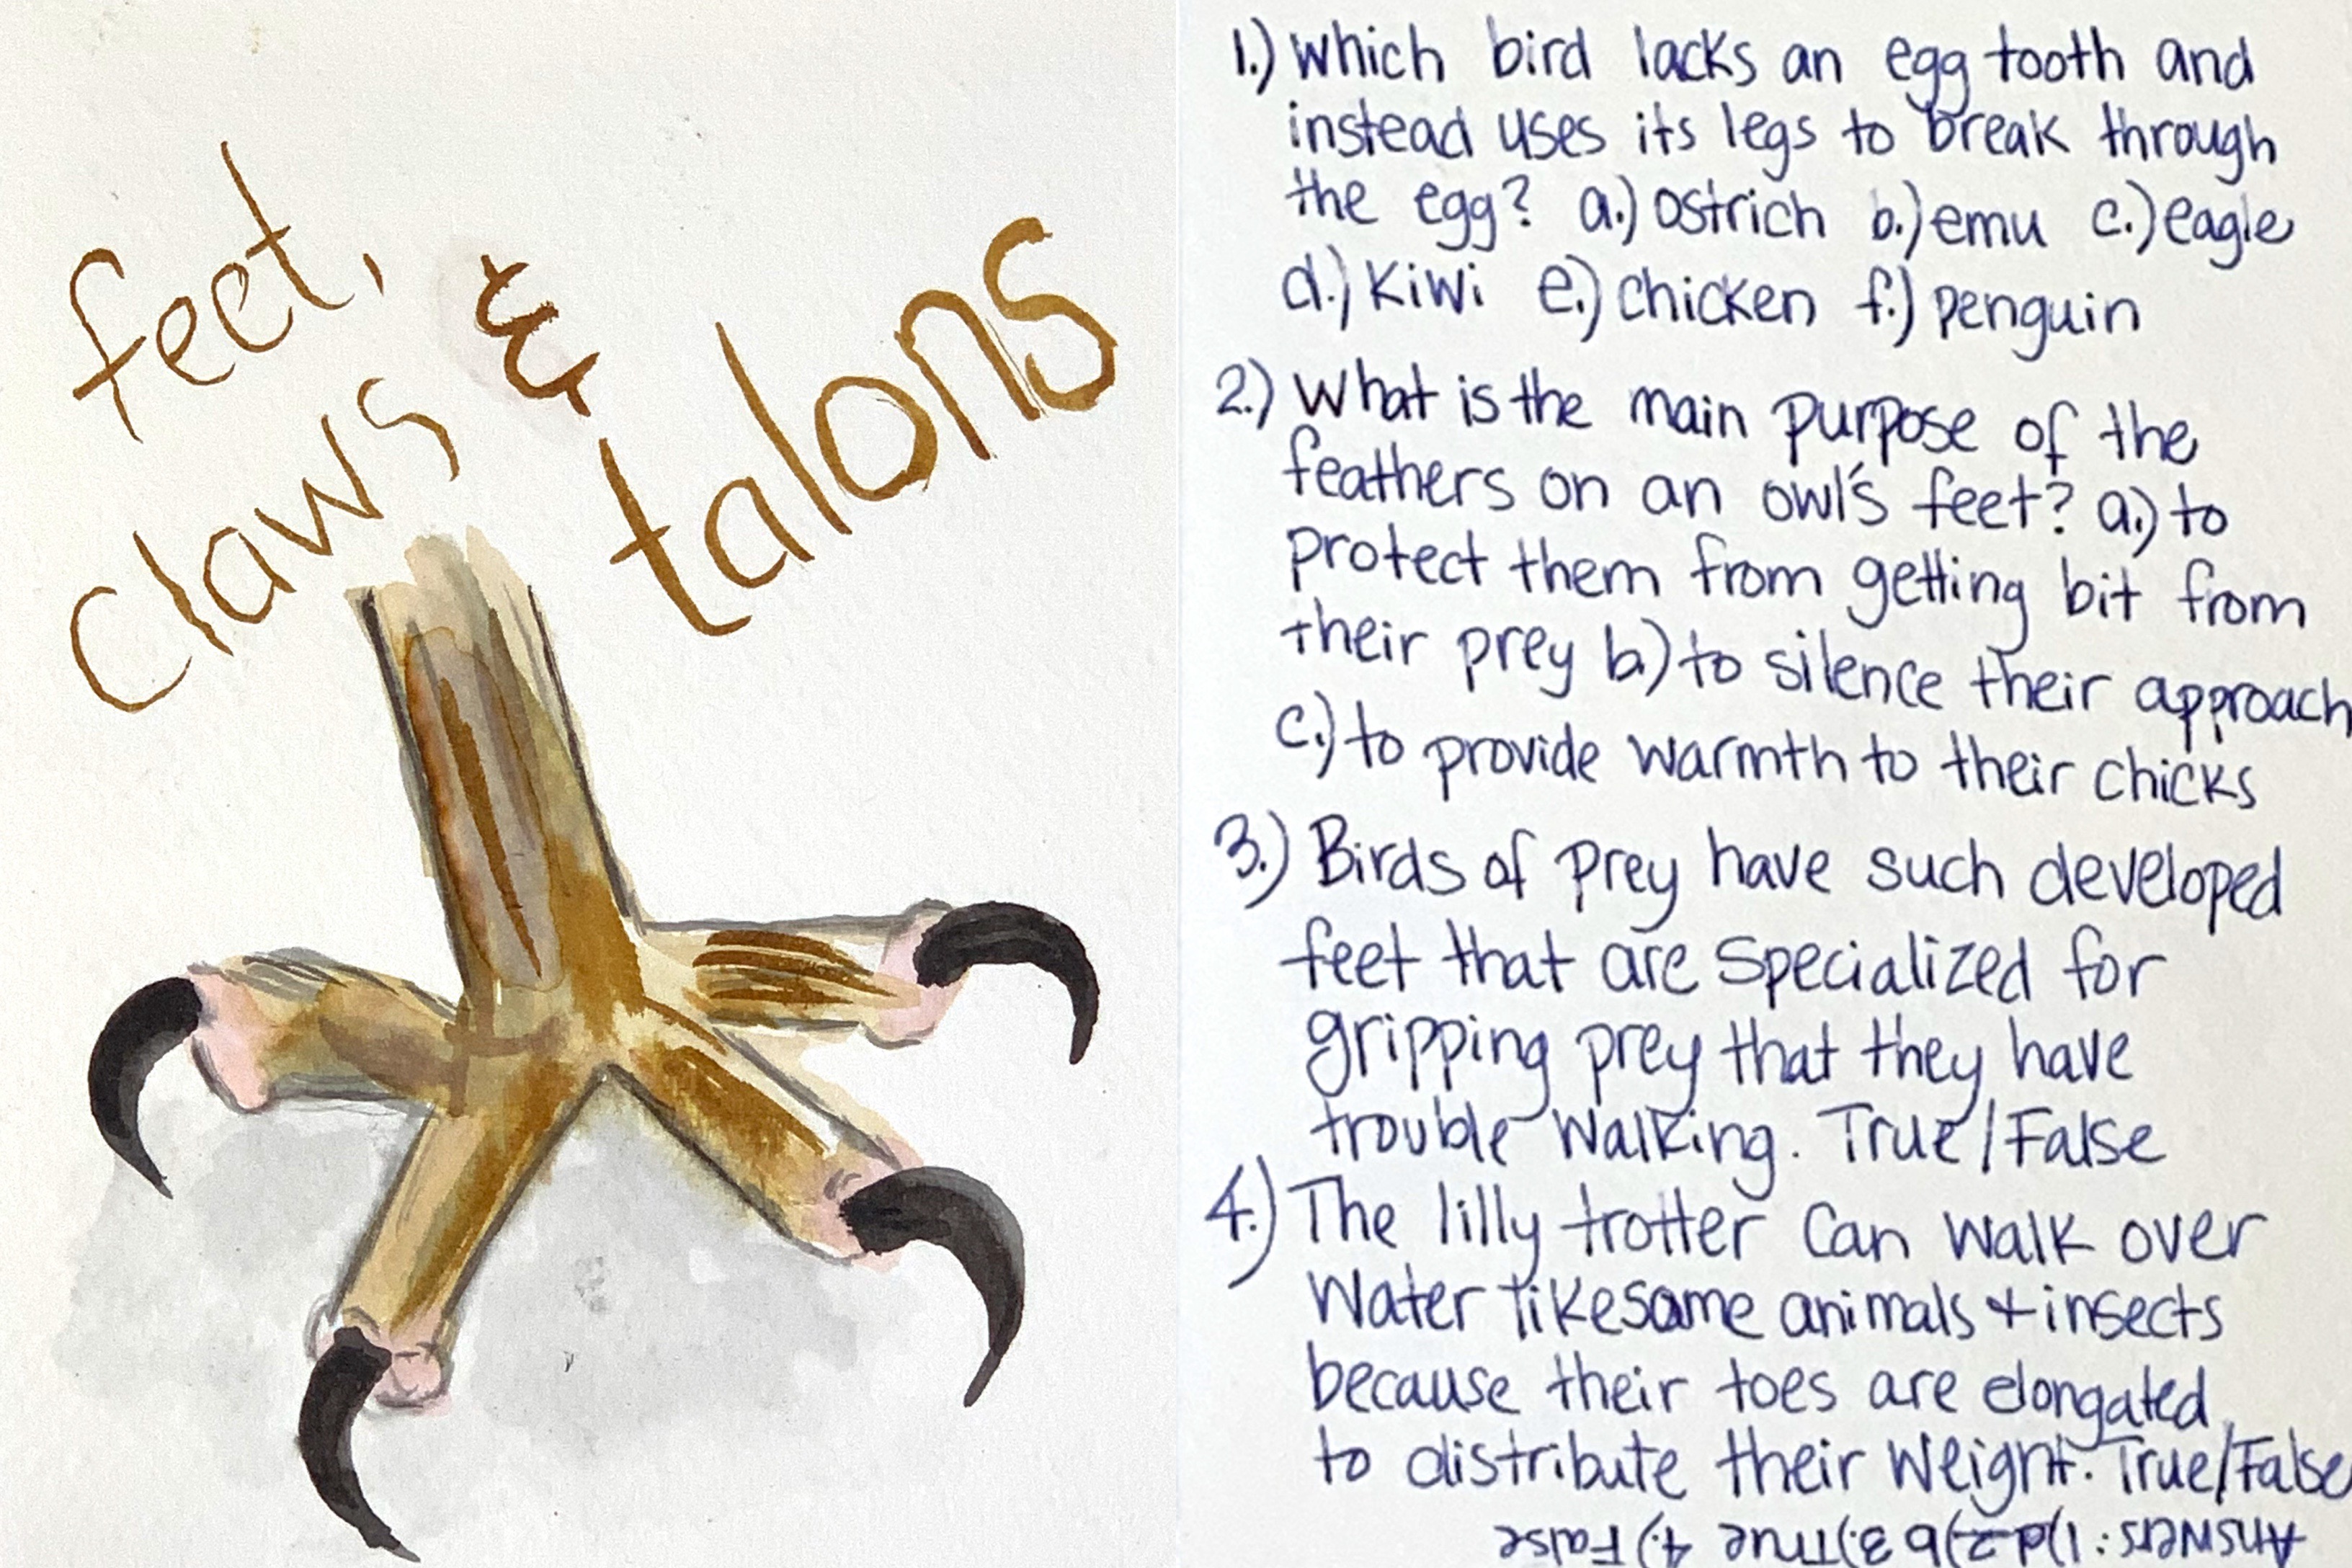 feet,
claws &
talons
1.) Which bird lacks an egg tooth and
instead uses its legs to break through
the egg? a.) ostrich b.) emu c.) eagle
d.) Kiwi e.) chicken f.) penguin
2.) What is the main purpose of the
feathers on an owl's feet? a.) to
protect them from getting bit from
their prey b.) to silence their approach
c.) to provide warmth to their chicks
3.) Birds of prey have such developed
feet that are specialized for
gripping prey that they have
trouble walking. True/False
4.) The lilly trotter can walk over
water like some animals + insects
because their toes are elongated
to distribute their weight. True/False
Answers: 1)d 2)b 3.)True 4.) False